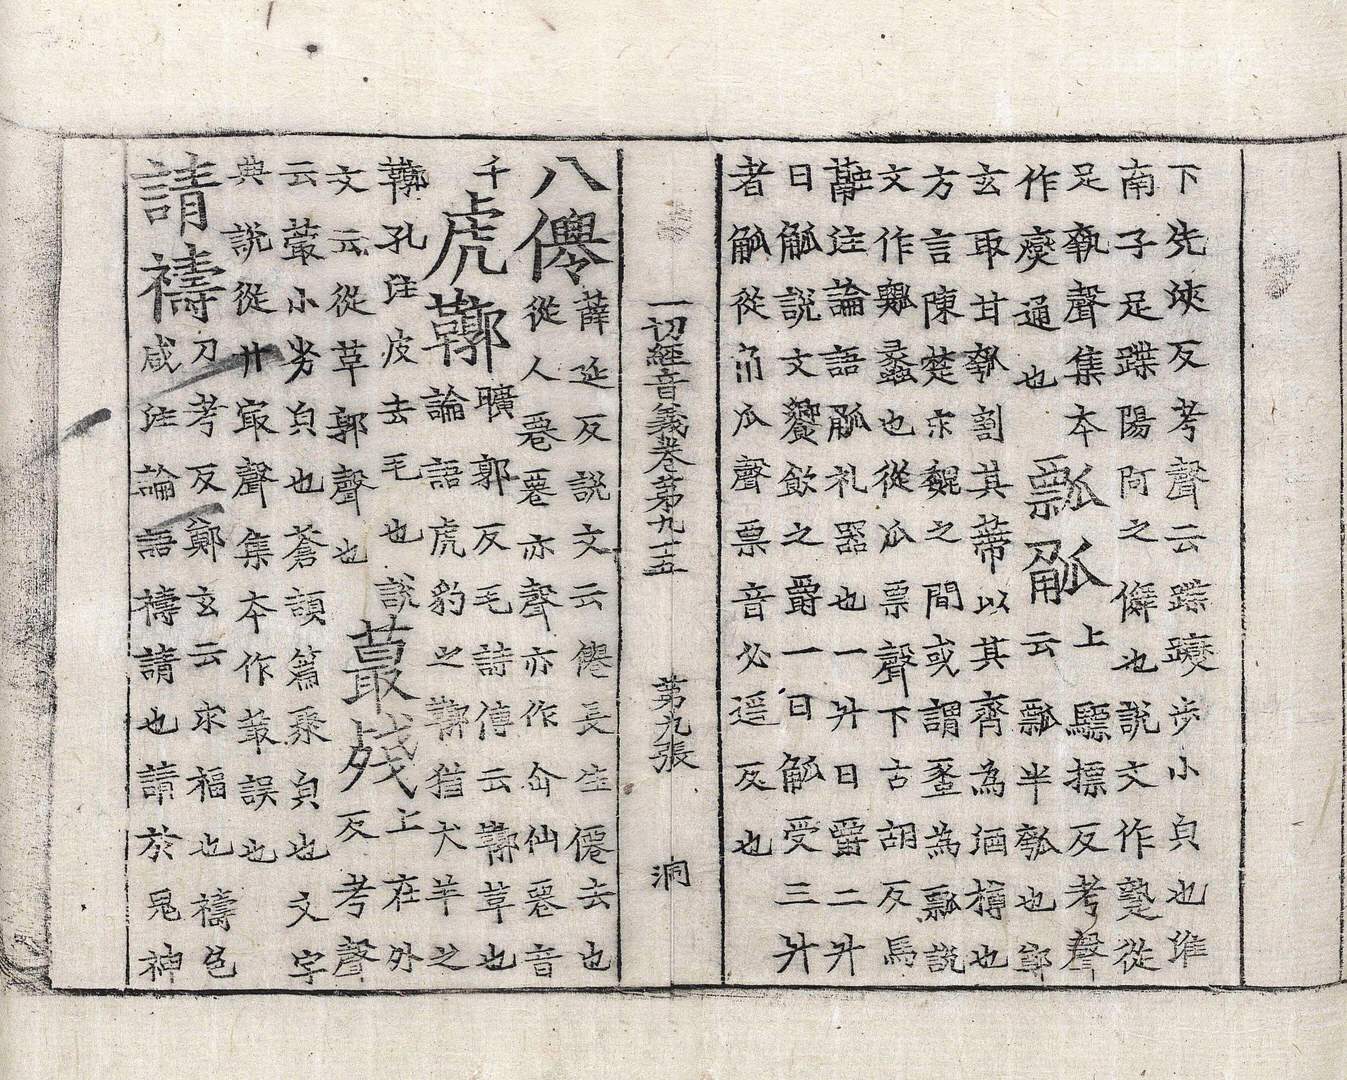 下先浹反考聲云蹀躞步小皃也淮
南子足蹀陽阿之僲也說文作躠從
足執聲集本
作䠟通也
瓢觚
上驃摽反考聲
云瓢半瓠也鄭
玄取甘瓠割其蔕以其齊為酒樽也
方言陳楚宋魏之間或謂䀉為瓢說
文作䉤蠡也從瓜票聲下古胡反馬
融注論語觚礼器也一升曰爵二升
曰觚說文饗飲之爵一曰觚受三升
者觚從角瓜聲票音必遥反也
一切經音義卷第九十五 第九張 洞
八僊
薛延反說文云僊長生僊去也
從人䙴䙴亦聲亦作仚仙䙴音
千
虎鞹
曠郭反毛詩傳云鞹革也
論語虎豹之鞹猶犬羊之
鞹孔注皮去毛也說
文云從革郭聲也
蕞殘
上在外
反考聲
云蕞小皃也蒼頡篇聚皃也文字
典說從艸最聲集本作䕺誤也
請禱
刀考反鄭玄云求福也禱包
咸注論語禱請也請於鬼神